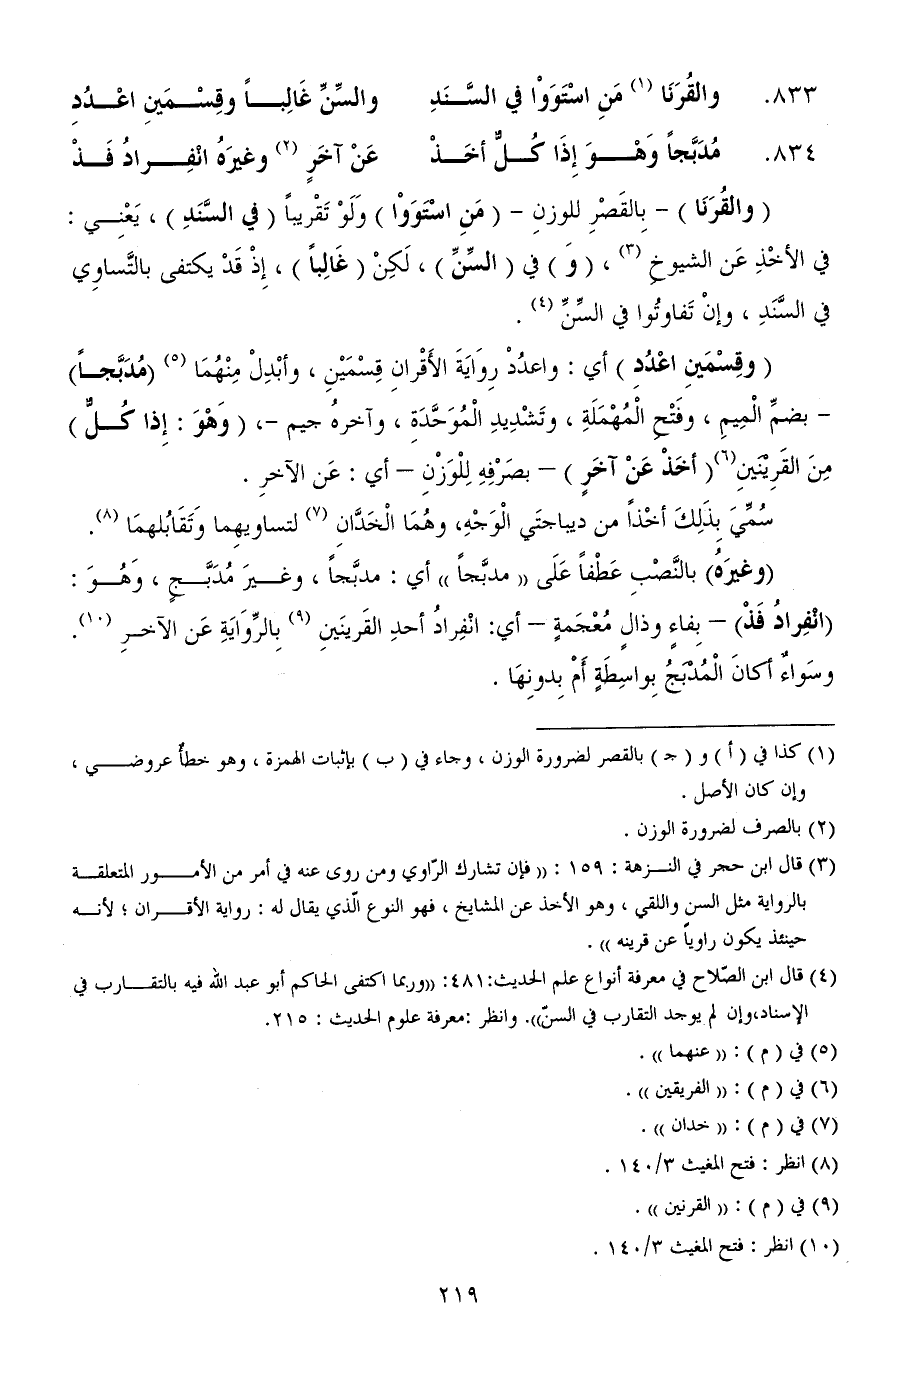 ٨٣٣. والقُرَنَا (١) مَنِ اسْتَوَوْا في السَّنَدِ والسِّنِّ غَالِباً وقِسْمَينِ اعْدُدِ
٨٣٤. مُدَبَّجاً وَهْوَ إذَا كُلٌّ أخَذْ عَنْ آخَرٍ (٢) وغيرَهُ انْفِرادُ فَذْ
( والقُرَنَا ) – بالقَصْرِ للوزنِ – ( مَنِ اسْتَوَوْا ) وَلَوْ تقْرِيباً ( في السَّنَدِ ) ، يَعْنِي :
في الأخْذِ عَنِ الشيوخِ (٣) ، ( وَ ) في ( السِّنِّ ) ، لَكِنْ ( غَالِباً ) ، إذْ قَدْ يكتفى بالتَّساوي
في السَّنَدِ ، وإنْ تَفاوتُوا في السِّنِّ (٤) .
( وقِسْمَينِ اعْدُدِ ) أي : واعدُدْ رِوَايَةَ الأقْرانِ قِسْمَيْنِ ، وأبْدِلْ مِنْهُمَا (٥) (مُدَبَّجاً)
– بضمِّ الْمِيمِ ، وفَتْحِ الْمُهْمَلَةِ ، وتَشْدِيدِ الْمُوَحَّدَةِ ، وآخرهُ جيم –، ( وَهْوَ : إذا كُلٌّ )
مِنَ القَرِيْنَينِ(٦)( أخَذْ عَنْ آخَرٍ ) – بصَرْفِهِ لِلْوَزْنِ – أي : عَنِ الآخرِ .
سُمِّيَ بِذَلِكَ أخْذاً من ديباجتَي الْوَجْهِ، وهُمَا الْخَدَّانِ (٧) لتساويهما وتَقَابُلهمَا (٨).
(وغيرَهُ) بالنَّصْبِ عَطْفاً عَلَى (( مدبَّجاً )) أي : مدبَّجاً ، وغيرَ مُدَبَّجٍ ، وَهُوَ :
(انْفِرادُ فَذْ) – بفاءٍ وذالٍ مُعْجَمةٍ – أي: انْفِرادُ أحدِ القَرِينَينِ (٩) بالرِّوَايَةِ عَنِ الآخرِ (١٠).
وسَواءٌ أكانَ الْمُدَبَّجُ بواسِطَةٍ أمْ بدونِهَا .
(١) كذا في ( أ ) و ( جـ ) بالقصر لضرورة الوزن ، وجاء في ( ب ) بإثبات الهمزة ، وهو خطأٌ عروضي ،
وإن كان الأصل .
(٢) بالصرف لضرورة الوزن .
(٣) قال ابن حجر في النزهة : ١٥٩ : (( فإن تشارك الرّاوي ومن روى عنه في أمر من الأمور المتعلقة
بالرواية مثل السن واللقي ، وهو الأخذ عن المشايخ ، فهو النوع الّذي يقال له : رواية الأقران ؛ لأنه
حينئذ يكون راوياً عن قرينه )) .
(٤) قال ابن الصّلاح في معرفة أنواع علم الحديث:٤٨١: ((وربما اكتفى الحاكم أبو عبد الله فيه بالتقارب في
الإسناد،وإن لم يوجد التقارب في السنّ)). وانظر :معرفة علوم الحديث : ٢١٥.
(٥) في ( م ) : (( عنهما )) .
(٦) في ( م ) : (( الفريقين )) .
(٧) في ( م ) : (( خدان )) .
(٨) انظر : فتح المغيث ٣/١٤٠ .
(٩) في ( م ) : (( القرنين )) .
(١٠) انظر : فتح المغيث ٣/١٤٠ .
٢١٩